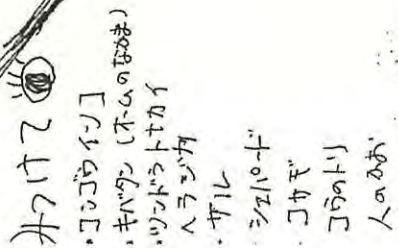 みつけて
・コンゴウインコ
・キバタン(オウムのなかま)
・ツンドラトナカイ
ヘラジカ
・サル
シェパード
・コサギ
コウノトリ
人のかお